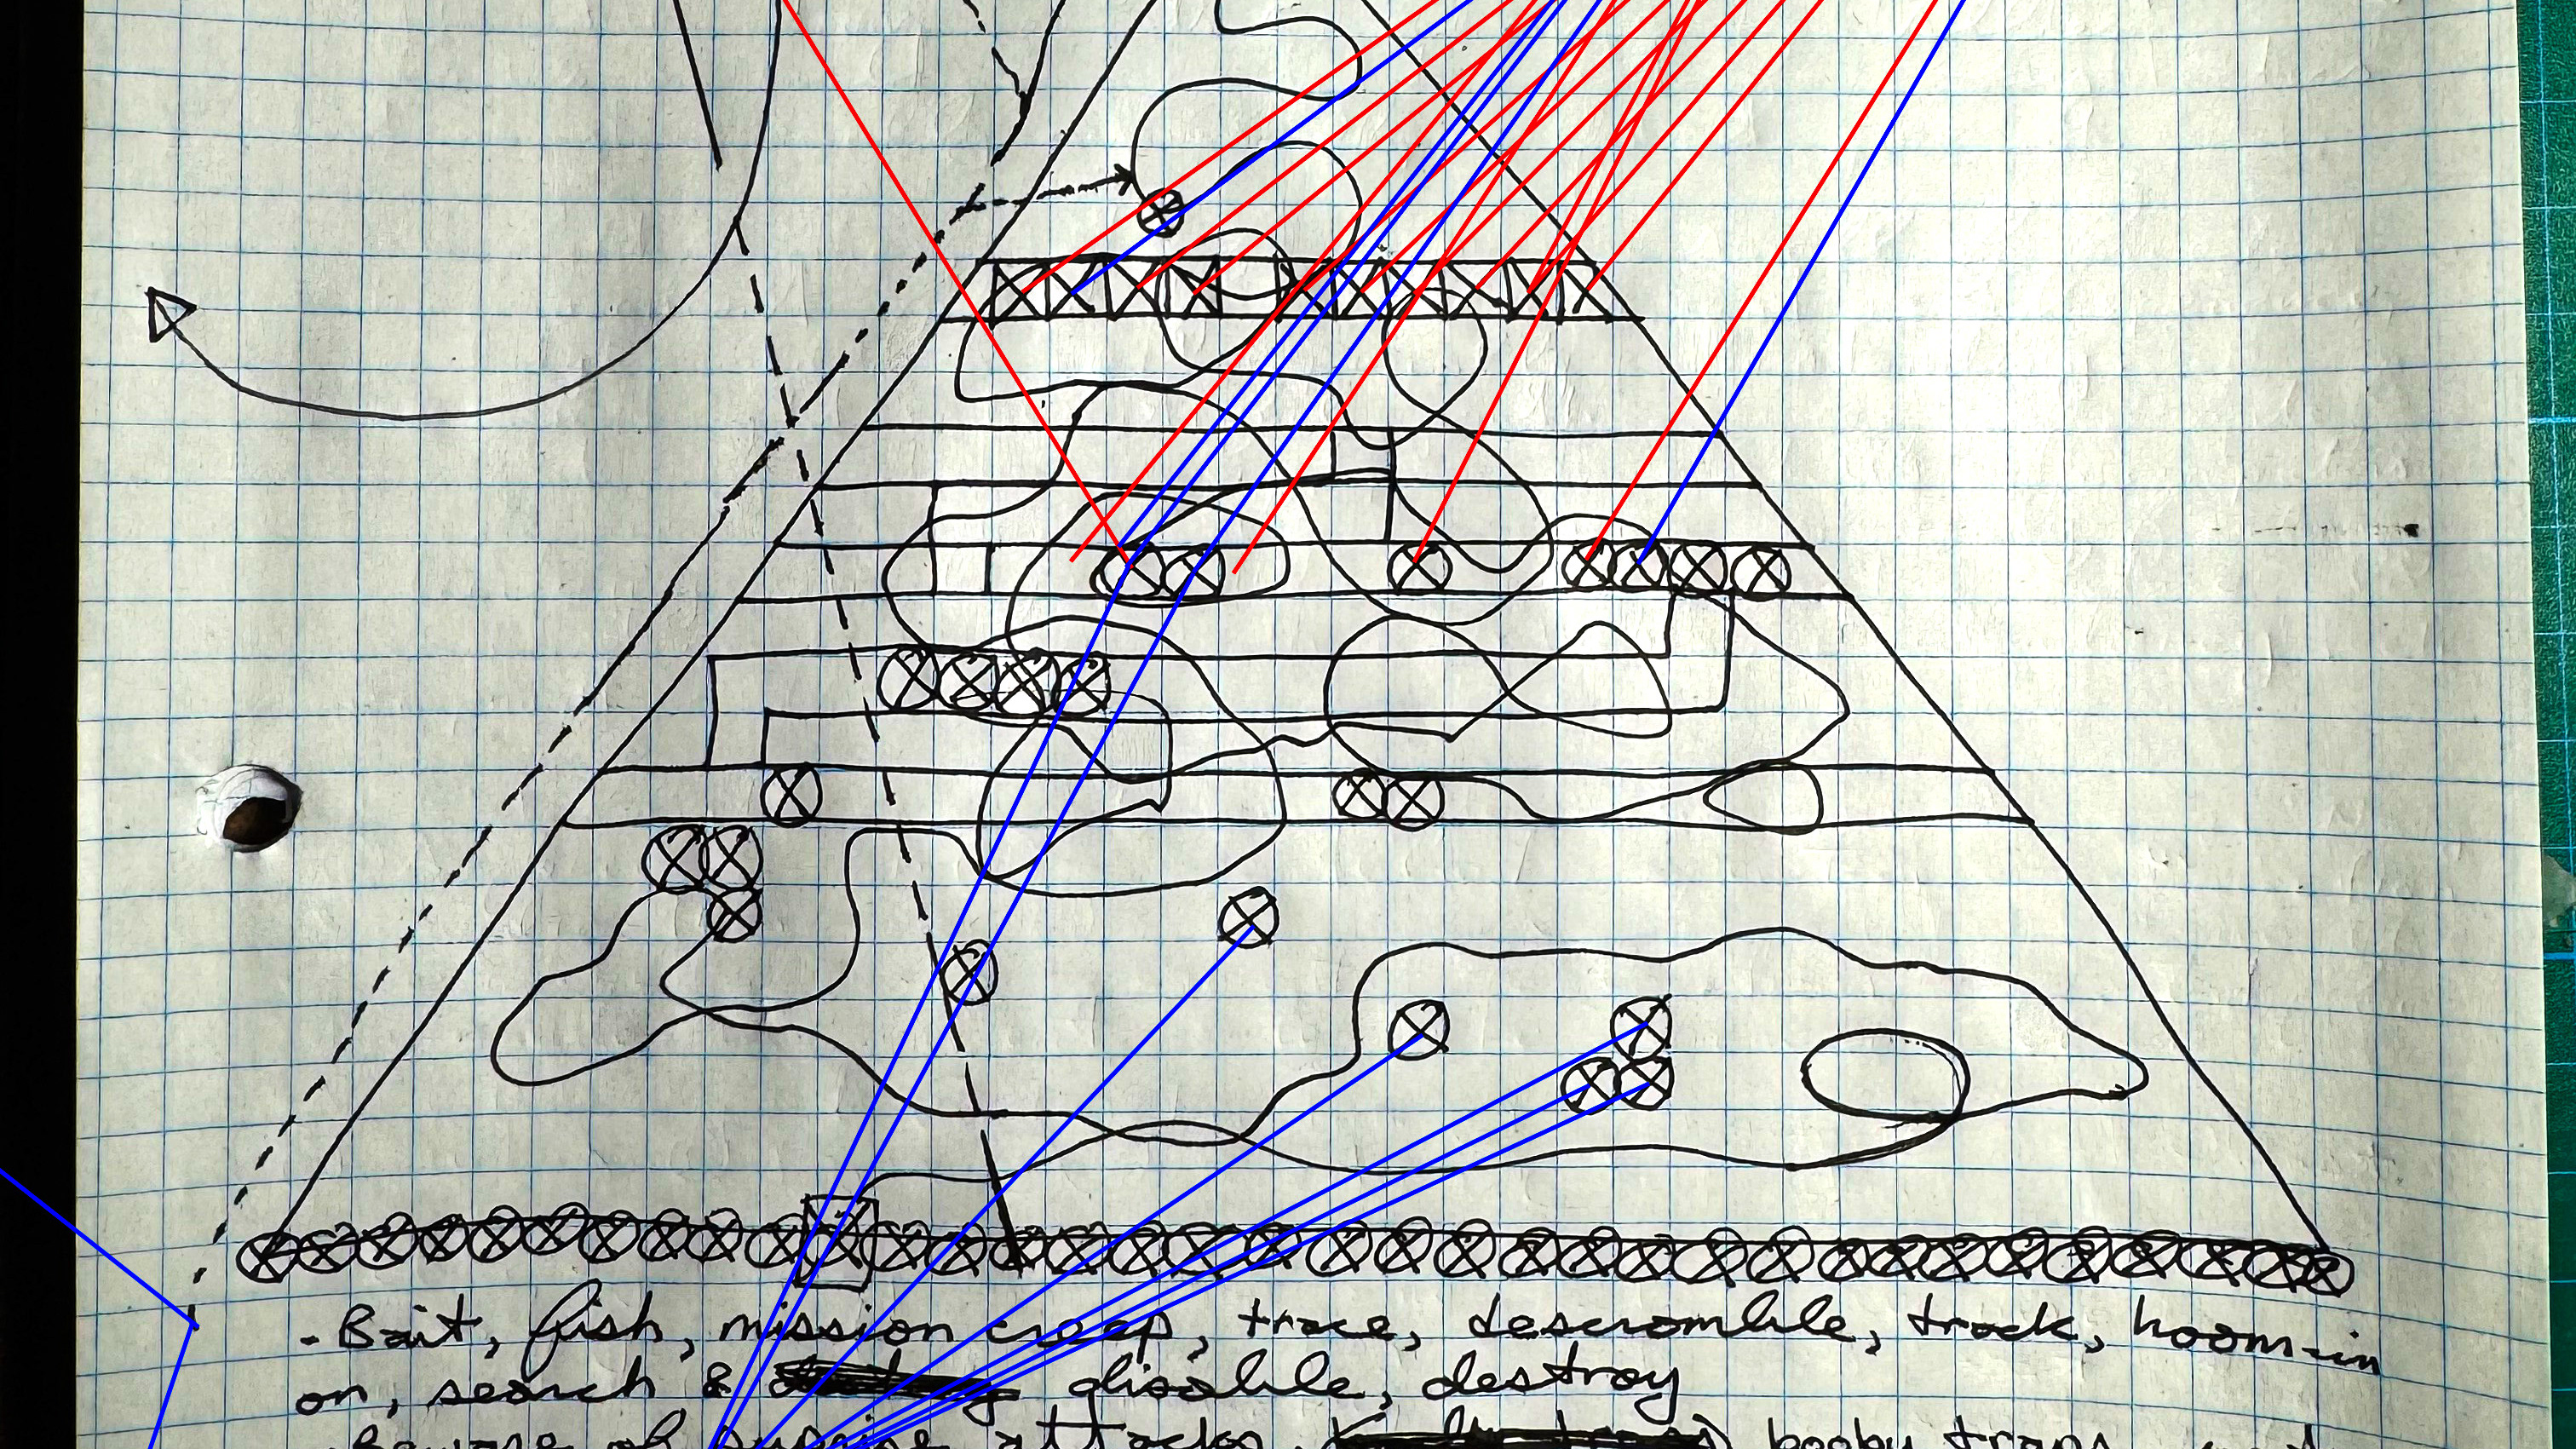 - Bait, fish, mission creep, trace, descromble, track, hoom-in
on, search & disable, destroy
- Beware of attacks, booby traps